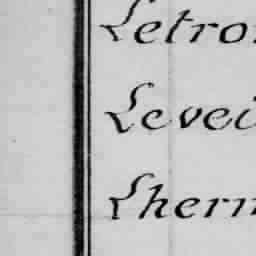 Letro
Levei
Lherm